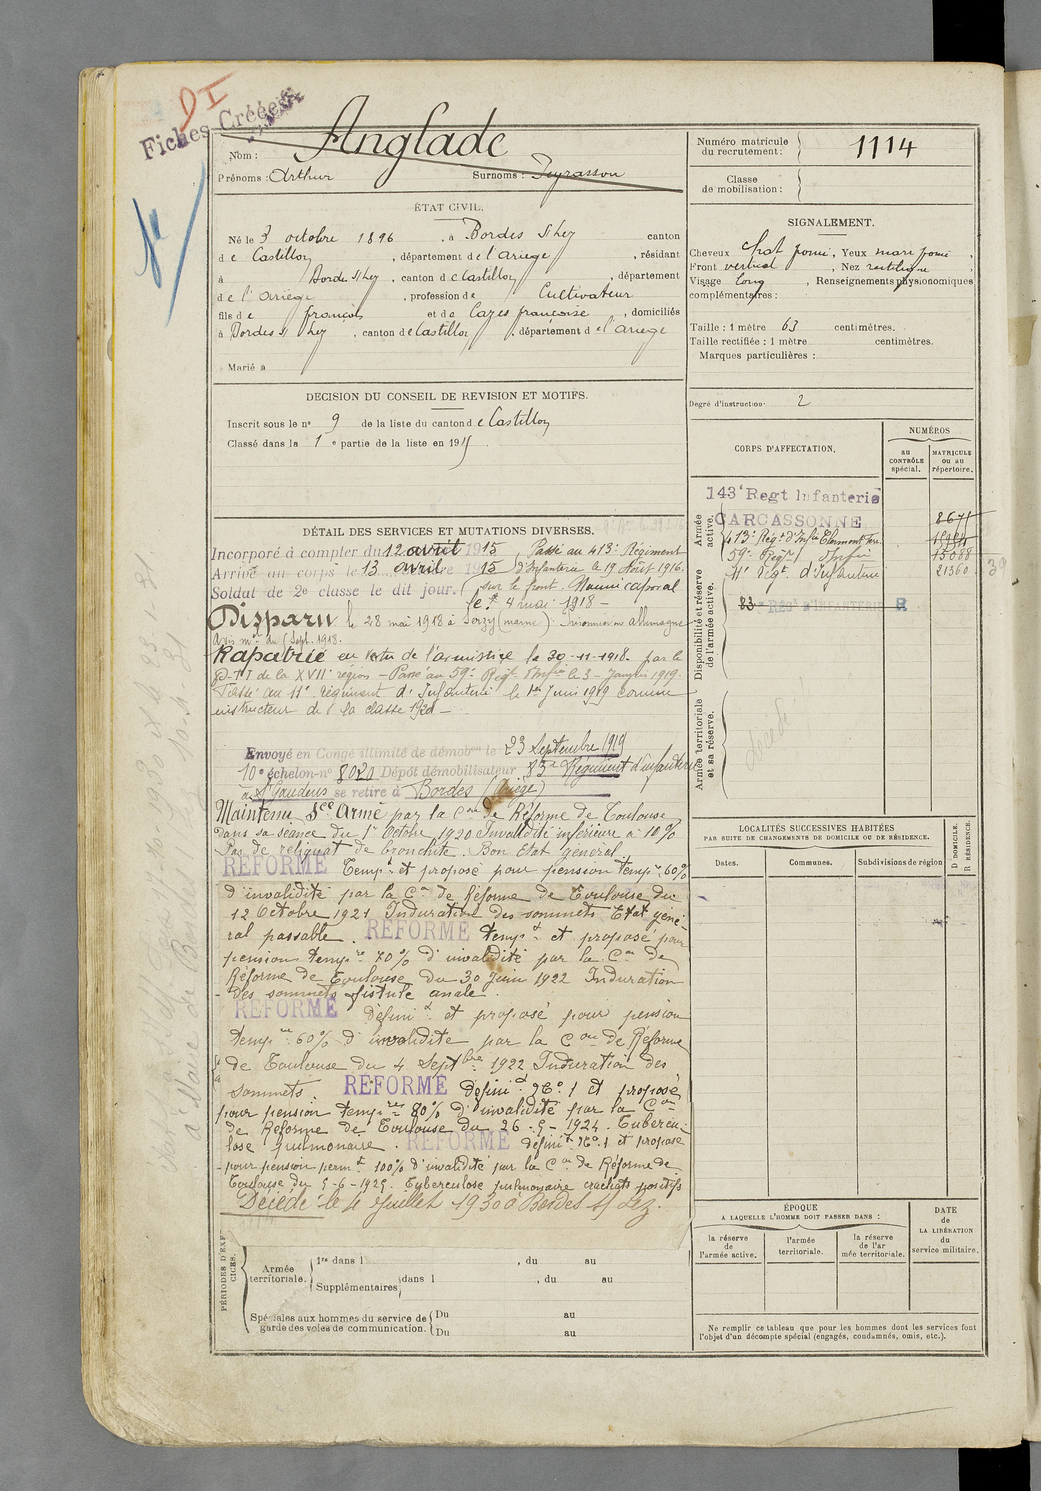 DI
Fiches Créées
Anglade
Nom :
Prénoms : Arthur Surnoms : Peyrasson
Numéro matricule
du recrutement : 1114
Classe
de mobilisation :
ÉTAT CIVIL.
Né le 3 octobre 1896, à Bordes s/Lez canton
de Castillon, département de l'Ariège, résidant
à Bordes s/Lez, canton de Castillon, département
de l'Ariège, profession de Cultivateur
fils de françois et de Cazes françoise, domiciliés
à Bordes s/ Lez, canton de Castillon, département de l'ariege
Marié à
SIGNALEMENT.
Cheveux chat foncé, Yeux mar foncé,
Front vertical, Nez rectiligne,
Visage long, Renseignements physionomiques
complémentaires :
Taille : 1 mètre 63 centimètres.
Taille rectifiée : 1 mètre centimètres.
Marques particulières :
Degré d'instruction : 2
DECISION DU CONSEIL DE REVISION ET MOTIFS.
Inscrit sous le n° 9 de la liste du canton de Castillon
Classé dans la 1e partie de la liste en 1915
DÉTAIL DES SERVICES ET MUTATIONS DIVERSES.
Incorporé à compter du 12 avril 1915, Passé au 413e Régiment
Arrivé au corps le 13 avril 1915 d'Infanterie le 19 Août 1916.
Soldat de 2e classe le dit jour. sur le front. Nommé caporal
le 4 mai 1918 -
Disparu le 28 mai 1918 à Serzy (marne). Prisonnier en allemagne
Avis mel du Sept. 1918.
Rapatrié en vertu de l'armistice le 30-11-1918. par le
D.T.I de la XVIIe région - Passé au 59e Régt d'Infie le 3 - Janvier 1919.
Passé au 11e régiment d'Infanterie le 1er Juin 1919 comme
instructeur de la classe 1920 -
Envoyé en Congé illimité de démobon le 23 Septembre 1919
10e échelon-n° 8020 Dépôt démobilisateur 83e Régiment d'infanterie
à St Gaudens se retire à Bordes (Ariège)
Maintenu Sce Armé par la Con de Réforme de Toulouse
dans sa séance du 1er Octobre 1920 Invalidité inférieure à 10%
Pas de reliquat de bronchite. Bon Etat général.
RÉFORMÉ Tempt et proposé pour pension tempre 60%
d'invalidité par la Con de Réforme de Toulouse du
12 Octobre 1921 Induration des sommets Etat géné-
ral passable. RÉFORMÉ tempt et proposé pour
pension tempre 70% d'invalidité par la Con de
Réforme de Toulouse du 30 Juin 1922 Induration
des sommets fistule anale.
RÉFORMÉ définit et proposé pour pension
tempre 60% d'invalidité par la Con de Réforme
de Toulouse du 4 Septbre 1922 Induration des
sommets. RÉFORMÉ définit N°1 et proposé
pour pension tempre 80% d'invalidité par la Con
de Réforme de Toulouse du 26-5-1924. Tubercu-
lose pulmonaire. RÉFORMÉ définit N°1 et proposé
pour pension permte 100% d'invalidité par la Con de Réforme de
Toulouse du 5-6-1925. Tuberculose pulmonaire crachats positifs
Décédé le 4 Juillet 1930 à Bordes s/ Lez.
CORPS D'AFFECTATION.
NUMÉROS
au CONTRÔLE spécial.
MATRICULE ou au répertoire.
Armée active.
143e Regt Infanterie
CARCASSONNE 8671
413e Régt d'Infie Clermont Fer
59e Régt d'Infie 15688
11e Régt d'Infanterie 21360
Disponibilité et réserve de l'armée active.
83e RÉGt D'INFANTERIE R
Armée territoriale et sa réserve.
décédé
LOCALITÉS SUCCESSIVES HABITÉES
PAR SUITE DE CHANGEMENTS DE DOMICILE OU DE RÉSIDENCE.
D DOMICILE.
R RÉSIDENCE.
Dates. Communes. Subdivisions de région
ÉPOQUE
A LAQUELLE L'HOMME DOIT PASSER DANS :
DATE
DE LA LIBÉRATION
du
service militaire.
la réserve de l'armée active.
l'armée territoriale.
la réserve de l'armée territoriale.
PÉRIODES D'EXERCICES.
Armée territoriale. 1re dans l , du au
Supplémentaires dans l , du au
Spéciales aux hommes du service de garde des voies de communication. Du au
Du au
Ne remplir ce tableau que pour les hommes dont les services font
l'objet d'un décompte spécial (engagés, condamnés, omis, etc.).